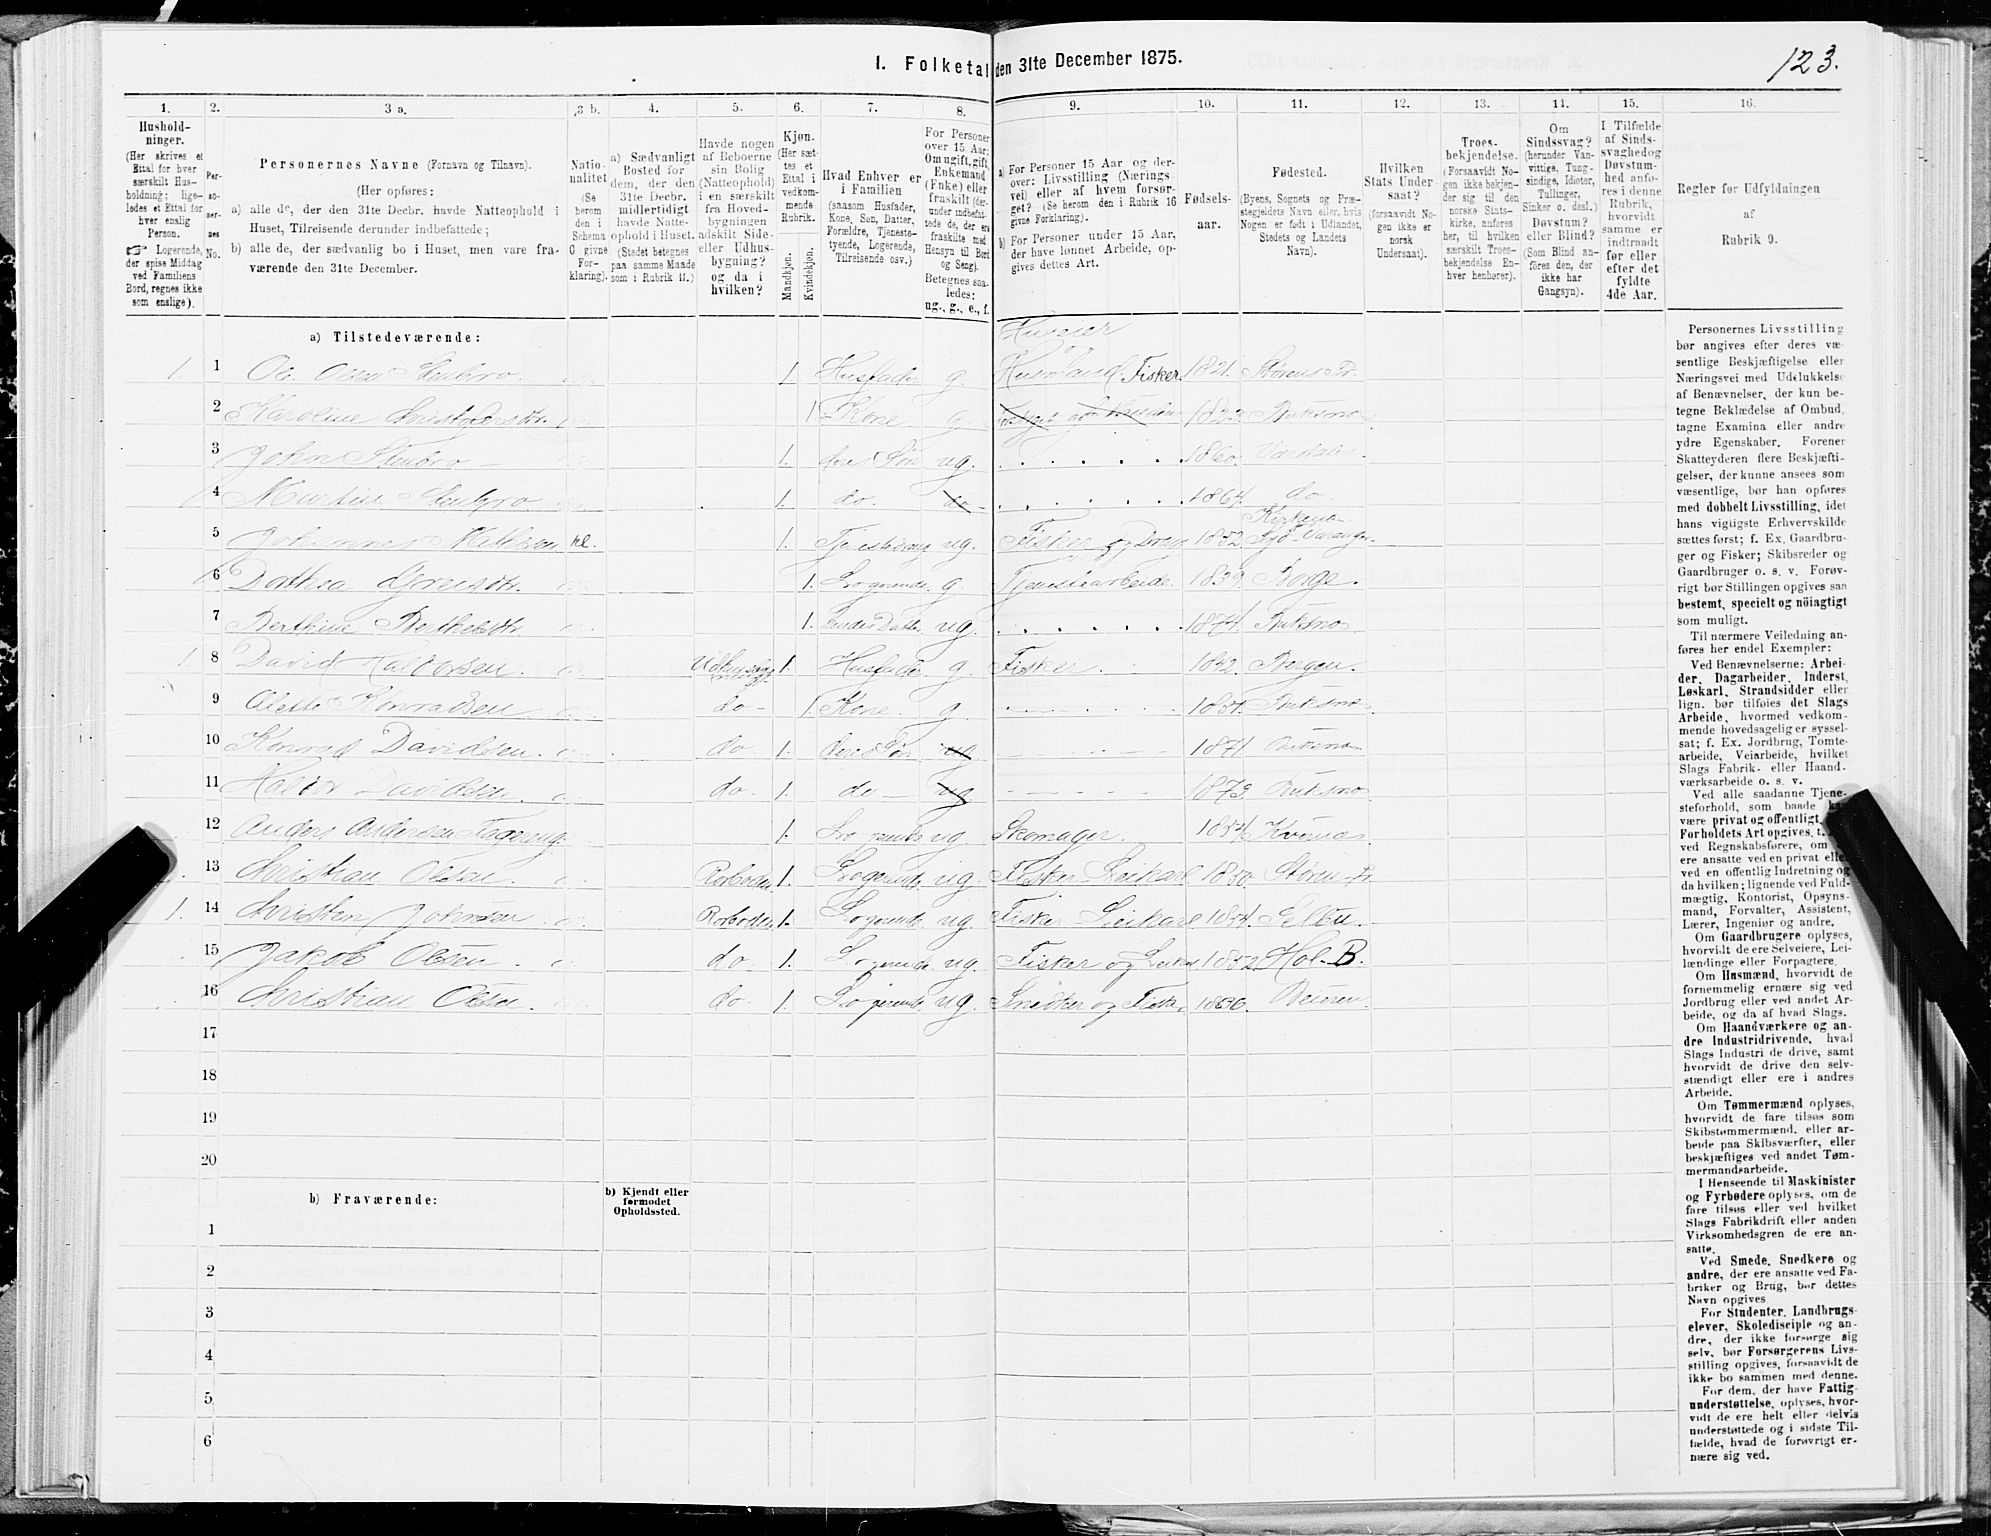 1. Folketal den 31te December 1875.
123.
1. 2. 3 a. 3 b. 4. 5. 6. 7. 8. 9. 10. 11. 12. 13. 14. 15. 16.
Hushold-
ninger.
(Her skrives et
Ettal for hver
særskilt Hus-
holdning; lige-
ledes et Ettal for
hver enslig
Person.
☞ Logerende,
der spise Middag
ved Familiens
Bord, regnes ikke
som enslige).
Per-
so-
ner-
nes
No.
Personernes Navne (Fornavn og Tilnavn).
(Her opføres:
a) alle de, der den 31te Decbr. havde Natteophold i
Huset, Tilreisende derunder indbefattede;
b) alle de, der sædvanlig bo i Huset, men vare fra-
værende den 31te December.
Natio-
nalitet
(Se
herom
den i
Schema
0 givne
For-
klaring).
a) Sædvanligt
Bosted for
dem, der den
31te Decbr.
midlertidigt
havde Natte-
ophold i Huset.
(Stedet betegnes
paa samme Maade
som i Rubrik 11.)
Havde nogen
af Beboerne
sin Bolig
(Natteophold)
i en særskilt
fra Hoved-
bygningen
adskilt Side-
eller Udhus-
bygning?
og da i
hvilken?
Kjøn.
(Her sæt-
tes et
Ettal i
vedkom-
mende
Rubrik.
Mandkjøn.
Kvindekjøn.
Hvad Enhver er
i Familien
(saasom Husfader,
Kone, Søn, Datter,
Forældre, Tjeneste-
tyende, Logerende,
Tilreisende osv.)
For Personer
over 15 Aar:
Om ugift, gift,
Enkemand
(Enke) eller
fraskilt (der-
under indbefat-
tede de, der ere
fraskilte med
Hensyn til Bord
og Seng).
Betegnes saa-
ledes:
ug., g., e., f.
a) For Personer 15 Aar og der-
over: Livsstilling (Nærings-
vei) eller af hvem forsør-
get? (Se herom den i Rubrik 16
givne Forklaring).
b) For Personer under 15 Aar,
der have lønnet Arbeide, op-
gives dettes Art.
Fødsels-
aar.
Fødested.
(Byens, Sognets og Præ-
stegjeldets Navn eller, hvis
Nogen er født i Udlandet,
Stedets og Landets
Navn).
Hvilken
Stats Under-
saat?
(forsaavidt No-
gen ikke er
norsk
Undersaat).
Troes-
bekjendelse.
(Forsaavidt No-
gen ikke bekjen-
der sig til den
norske Stats-
kirke, anføres
her, til hvilken
særskilt Troes-
bekjendelse En-
hver henhører).
Om
Sindssvag?
(herunder Van-
vittige, Tung-
sindige, Idioter,
Tullinger,
Sinker o. desl.)
Døvstum?
eller Blind?
(Som Blind an-
føres den, der
ikke har
Gangsyn).
I Tilfælde
af Sinds-
svaghed og
Døvstum-
hed anfø-
res i denne
Rubrik,
hvorvidt
samme er
indtraadt
før eller
efter det
fyldte
4de Aar.
Regler for Udfyldningen
af
Rubrik 9.
a) Tilstedeværende:
Huseier
1. 1 Ol. Olsen Stenbro 1. Husfader g. Husmand. Fisker. 1821. Størens Pr.
2 Karoline 1 Kone. g. 1823. Buksnæs
3 John Stenbro 1. deres Søn ug. 1860.
4 Martin Stenbro 1. do. do 1864. do.
Kirkenæs
5 Johannes 1. ug. Fisker og 1852. Syd-Varanger.
6 Dorthea 1. Logerende. g. Tjenestearbeide. 1839. Borge.
7 Berthine 1. Datter ug. 1874. Buksnæs
1. 8 David Haldorsen. Udhusbyg 1. Husfader g. Fisker. 1842. Bergen.
9 Alette Konradsen do- 1 Kone. g. Buksnæs
10 Konrad Davidsen. do. 1. deres Søn. ug 1871. Buksnæs
11 Haldor Davidsen do. 1. do ug 1873. Buksnæs
12 Anders Andersen 1. Logerende ug. Skomager. 1854
13 Christian Olsen. Rorboden 1. Logerende ug. Fisker Leikarl 1850. Støren Pr.
1. 14 Christen Johnsen Rorboden 1. Logerende ug. Fisker Leikarl 1854. Selbu.
15 Jakob Olsen do. 1. Logerende ug. Fisker og Leikarl 1852. Hol. B.
16 Christian Olsen. do 1. Logerende ug. Snedker og Fisker
17
18
19
20
b) Fraværende:
b) Kjendt eller
formodet
Opholdssted.
1
2
3
4
5
6
Personernes Livsstilling
bør angives efter deres væ-
sentlige Beskjæftigelse eller
Næringsvei med Udelukkelse
af Benævnelser, der kun be-
tegne Beklædelse af Ombud,
tagne Examina eller andre
ydre Egenskaber. Forener
Skatteyderen flere Beskjæfti-
gelser, der kunne ansees som
væsentlige, bør han opføres
med dobbelt Livsstilling, idet
hans vigtigste Erhvervskilde
sættes først; f. Ex. Gaardbru-
ger og Fisker; Skibsreder og
Gaardbruger o. s. v. Forøv-
rigt bør Stillingen opgives saa
bestemt, specielt og nöiagtigt
som muligt.
Til nærmere Veiledning an-
føres her endel Exempler:
Ved Benævnelserne: Arbei-
der, Dagarbeider, Inderst,
Løskarl, Strandsidder eller
lign. bør tilføies det Slags
Arbeide, hvormed vedkom-
mende hovedsagelig er syssel-
sat; f. Ex. Jordbrug, Tomte-
arbeide, Veiarbeide, hvilket
Slags Fabrik- eller Haand-
værksarbeide o. s. v.
Ved alle saadanne Tjene-
steforhold, som baade kan
være privat og offentligt,
Forholdets Art opgives, t.
ved Regnskabsførere, om
ere ansatte ved en privat elle
ved en offentlig Indretning og
da hvilken; lignende ved Fuld-
mægtig, Kontorist, Opsyns-
mand, Forvalter, Assistent,
Lærer, Ingeniør og andre.
Om Gaardbrugere oplyses,
hvorvidt de ere Selveiere, Lei-
lændinge eller Forpagtere.
Om Husmænd, hvorvidt de
fornemmelig ernære sig ved
Jordbrug eller ved andet Ar-
beide, og da af hvad Slags.
Om Haandværkere og an-
dre Industridrivende, hvad
Slags Industri de drive, samt
hvorvidt de drive den selv-
stændigt eller ere i andres
Arbeide.
Om Tømmermænd oplyses,
hvorvidt de fare tilsøs som
Skibstømmermænd, eller ar-
beide paa Skibsværfter, eller
beskjæftiges ved andet Tøm-
mermandsarbeide.
I Henseende til Maskinister
og Fyrbødere oplyses, om de
fare tilsøs eller ved hvilket
Slags Fabrikdrift eller anden
Virksomhedsgren de ere an-
satte.
Ved Smede, Snedkere og
andre, der ere ansatte ved Fa-
briker og Brug, bør dettes
Navn opgives
For Studenter, Landbrugs-
elever, Skoledisciple og an-
dre, der ikke forsørge sig
selv, bør Forsørgerens Livs-
stilling opgives, forsaavidt de
ikke bo sammen med denne.
For dem, der have Fattig-
understøttelse, oplyses, hvor-
vidt de ere helt eller delvis
understøttede og i sidste Til-
fælde, hvad de forøvrigt er-
nære sig ved.